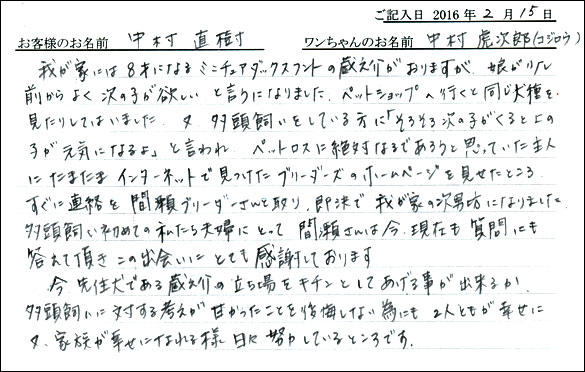 ご記入日 2016年2月15日
お客様のお名前 中村 直樹 ワンちゃんのお名前 中村 虎次郎(コジロウ)
我が家には8才になるミニチュアダックスフントの蔵之介がおりますが、娘が
前からよく次の子が欲しいと言うになりました。ペットショップへ行くと同じ犬種を
見たりしてはいました。又、多頭飼いをしている方に「そろそろ次の子がくると上の
子が元気になるよ」と言われ、ペットロスに絶対なるであろうと思っていた主人
にたまたまインターネットで見つけたブリーダーズのホームページを見せたところ、
すぐに連絡を間瀬ブリーダーさんと取り、即決で我が家の次男坊になりました。
多頭飼い初めての私たち夫婦にとって間瀬さんは今、現在も質問にも
答えて頂きこの出会いにとても感謝しております
今先住犬である蔵之介の立ち場をキチンとしてあげる事が出来るか、
多頭飼いに対する考えが甘かったことを後悔しない為にも2人ともが幸せに
又、家族が幸せになれる様日々努力しているところです。